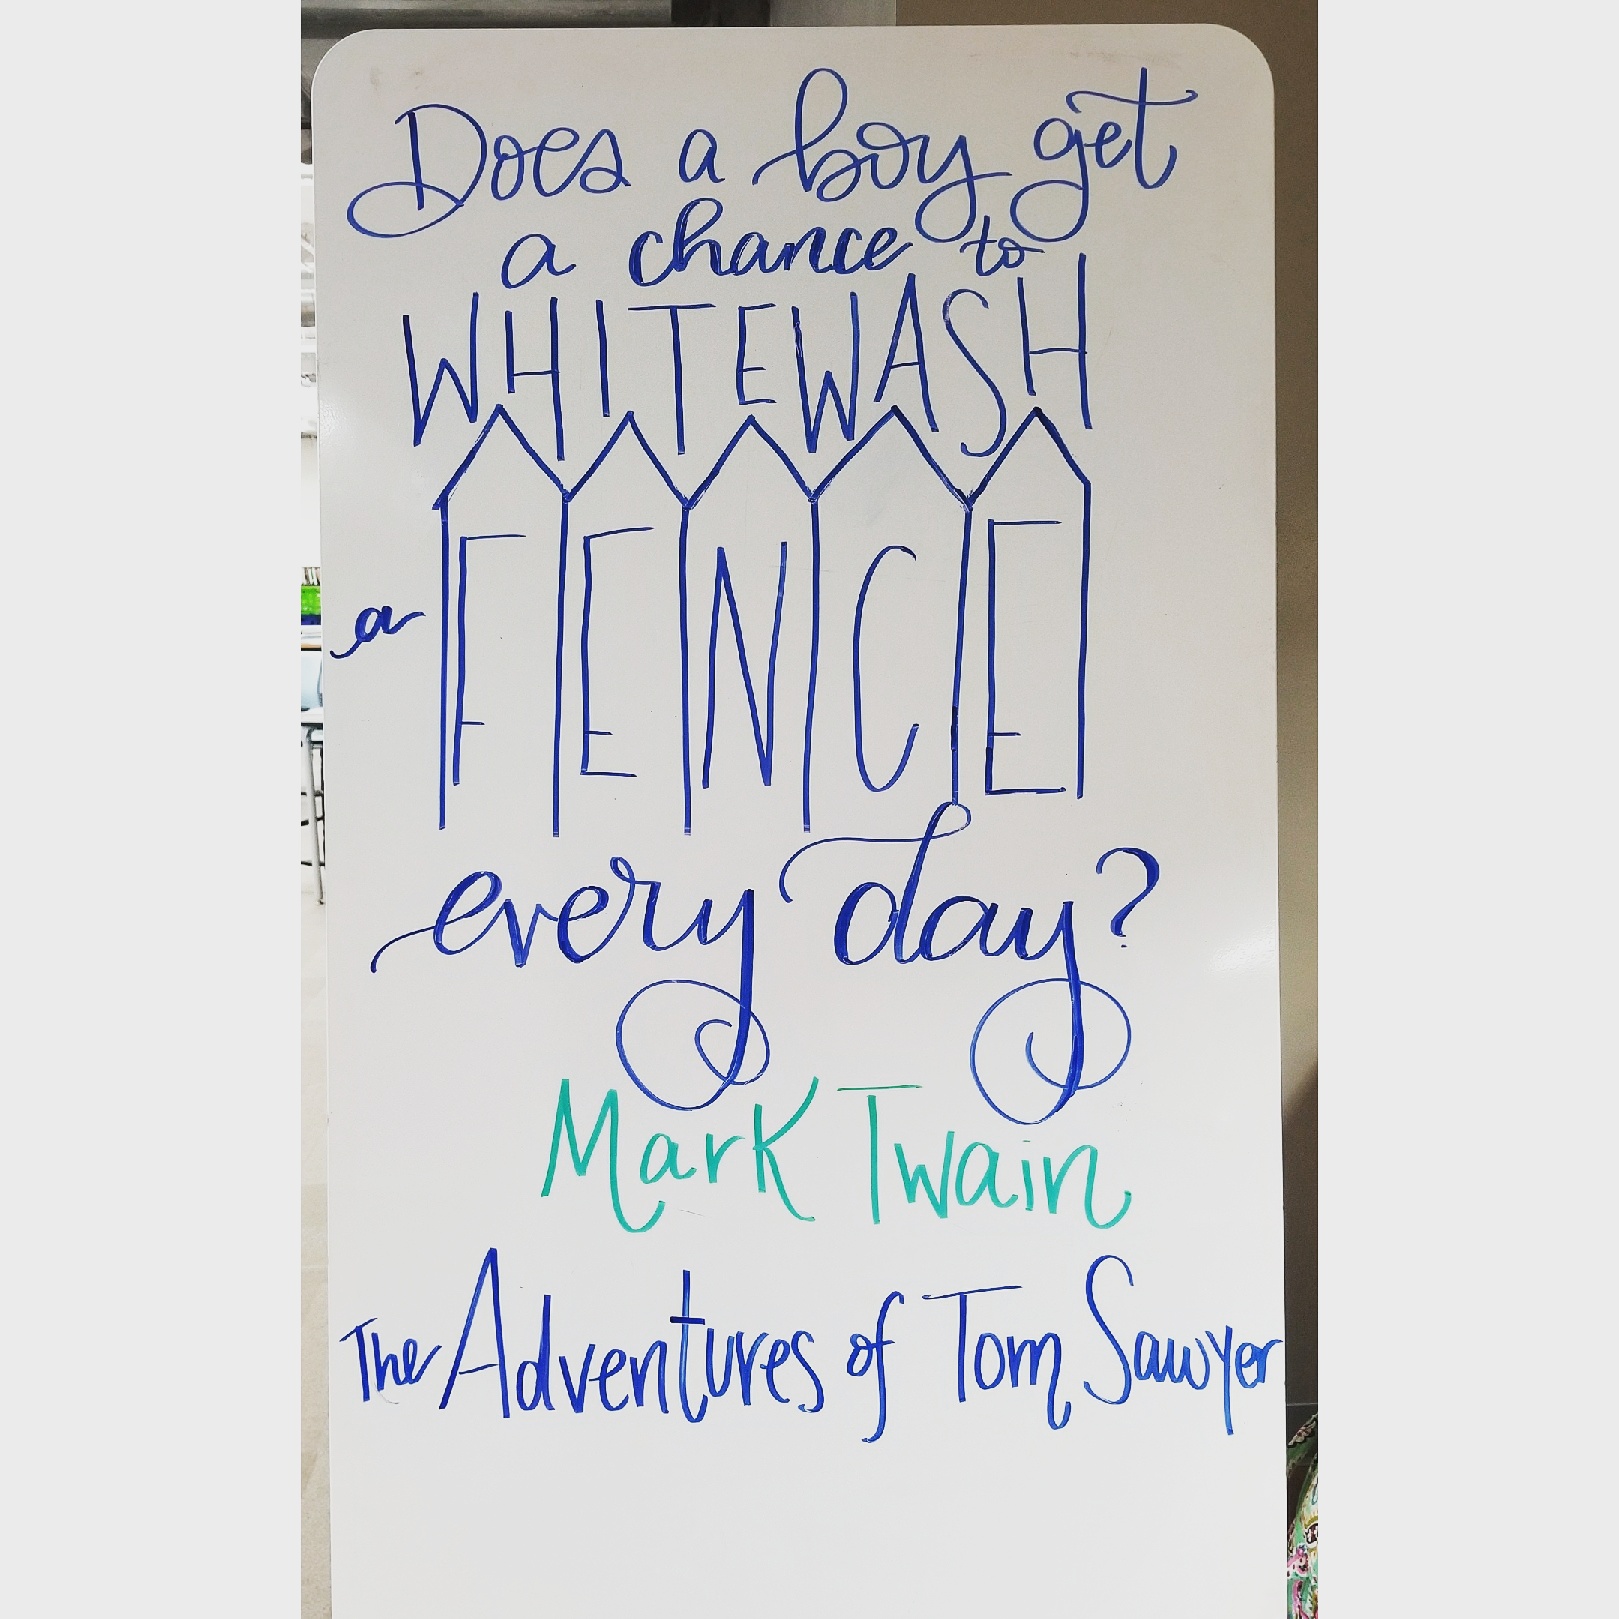 Does a boy get
a chance to
WHITEWASH
a FENCE
every day?
Mark Twain
The Adventures of Tom Sawyer